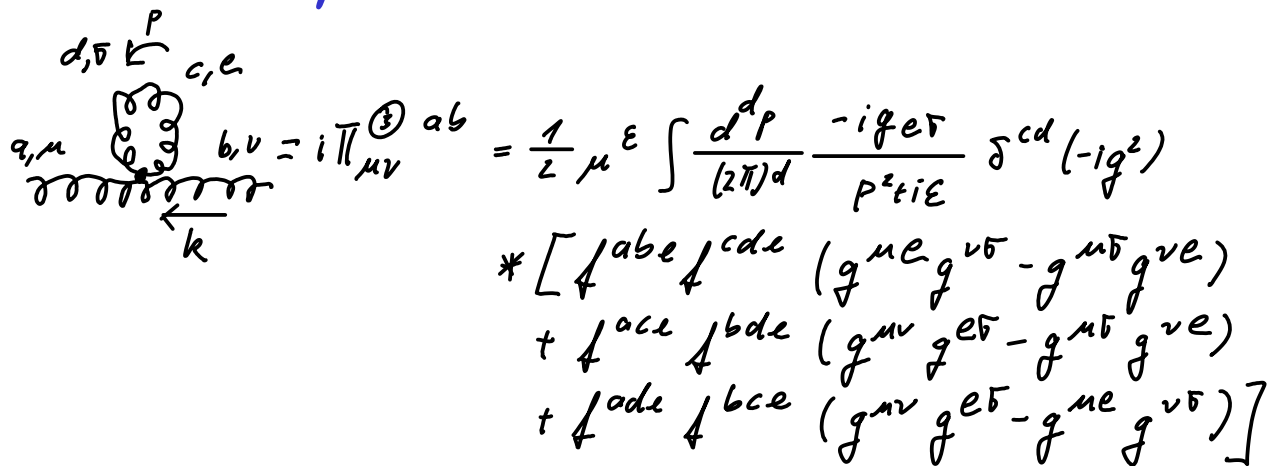 p
d,σ c,ρ
a,μ b,ν = i Π_{μν}^{③ ab} = \frac{1}{2} μ^ε ∫ \frac{d^d p}{(2π)^d} \frac{-i g_{ρσ}}{p^2+iε} δ^{cd} (-ig^2)
k
* [ f^{abe} f^{cde} (g^{μρ} g^{νσ} - g^{μσ} g^{νρ})
+ f^{ace} f^{bde} (g^{μν} g^{ρσ} - g^{μσ} g^{νρ})
+ f^{ade} f^{bce} (g^{μν} g^{ρσ} - g^{μρ} g^{νσ}) ]